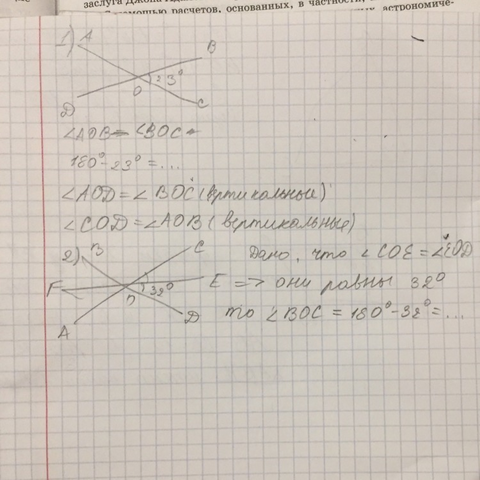 заслуга Джона
помощью расчетов, основанных, в частности,
астрономиче-
1) A
B
23°
O
D
C
∠AOB = ∠BOC =
180° - 23° = ...
∠AOD = ∠BOC (вертикальные)
∠COD = ∠AOB (вертикальные)
2) B
C
Дано, что ∠COE = ∠EOD
F
O
32°
E => они равны 32°
A
D
то ∠BOC = 180° - 32° = ...